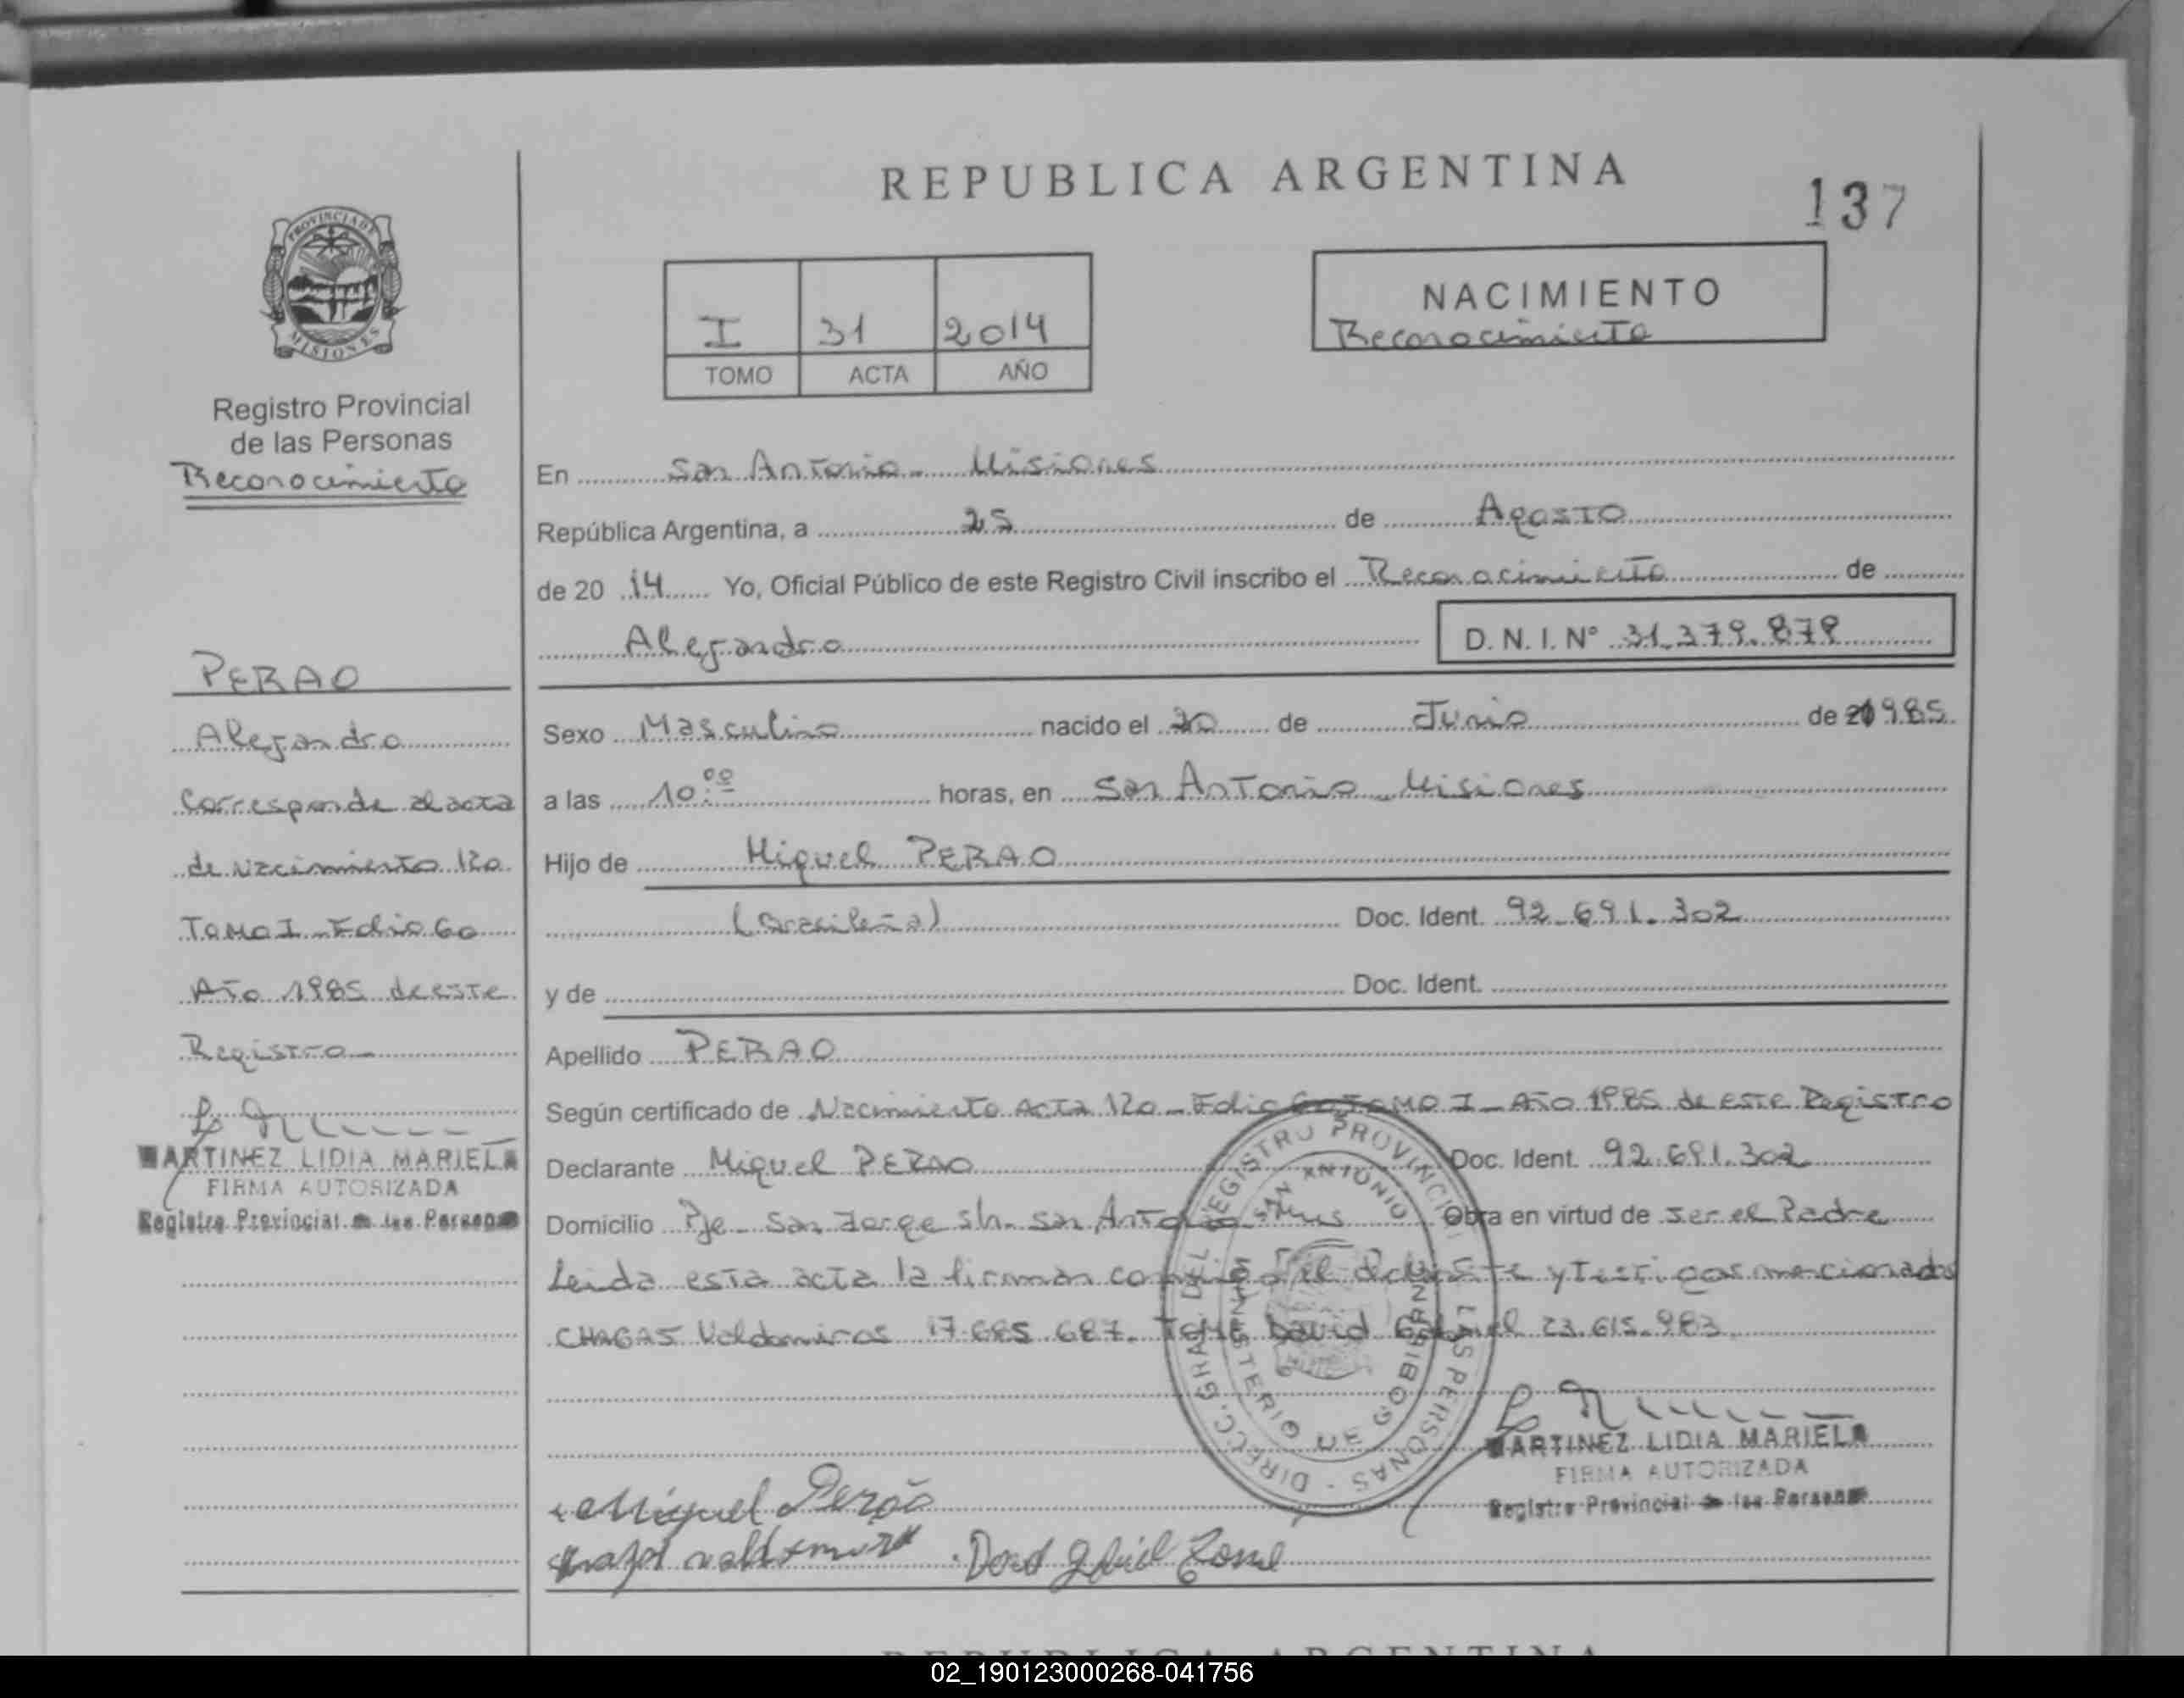 REPUBLICA ARGENTINA
137
PROVINCIA DE
MISIONES
Registro Provincial
de las Personas
Reconocimiento
I 31 2014
TOMO ACTA AÑO
NACIMIENTO
Reconocimiento
En San Antonio - Misiones
República Argentina, a 25 de Agosto
de 20 14 Yo, Oficial Público de este Registro Civil inscribo el Reconocimiento de
Alejandro D. N. I. N° 31.379.878
PERAO
Alejandro
Corresponde al acta
de Nacimiento 120
Tomo I - Folio 60
Año 1985 de este
Registro
MARTINEZ LIDIA MARIELA
FIRMA AUTORIZADA
Registro Provincial de las Personas
Sexo Masculino nacido el 20 de Junio de 1985
a las 10:00 horas, en San Antonio - Misiones
Hijo de Miguel PERAO
(Brasileña) Doc. Ident. 92.691.302
y de Doc. Ident.
Apellido PERAO
Según certificado de Nacimiento Acta 120 - Folio 60 TOMO I - Año 1985 de este Registro
Declarante Miguel PERAO Doc. Ident. 92.691.302
Domicilio Pje - San Jorge s/n - San Antonio Mnes Obra en virtud de ser el Padre
Leida esta acta la firman conmigo el declarante y Testigos mencionados
CHAGAS Valdomiros 17.685.687. TOME David Gabriel 23.615.983
DIRECC. GRAL. DEL REGISTRO PROVINCIAL DE LAS PERSONAS -
SAN ANTONIO
MINISTERIO DE GOBIERNO
MARTINEZ LIDIA MARIELA
FIRMA AUTORIZADA
Registro Provincial de las Personas
Miguel Perão
David Gabriel Tomé
REPUBLICA ARGENTINA
02_190123000268-041756